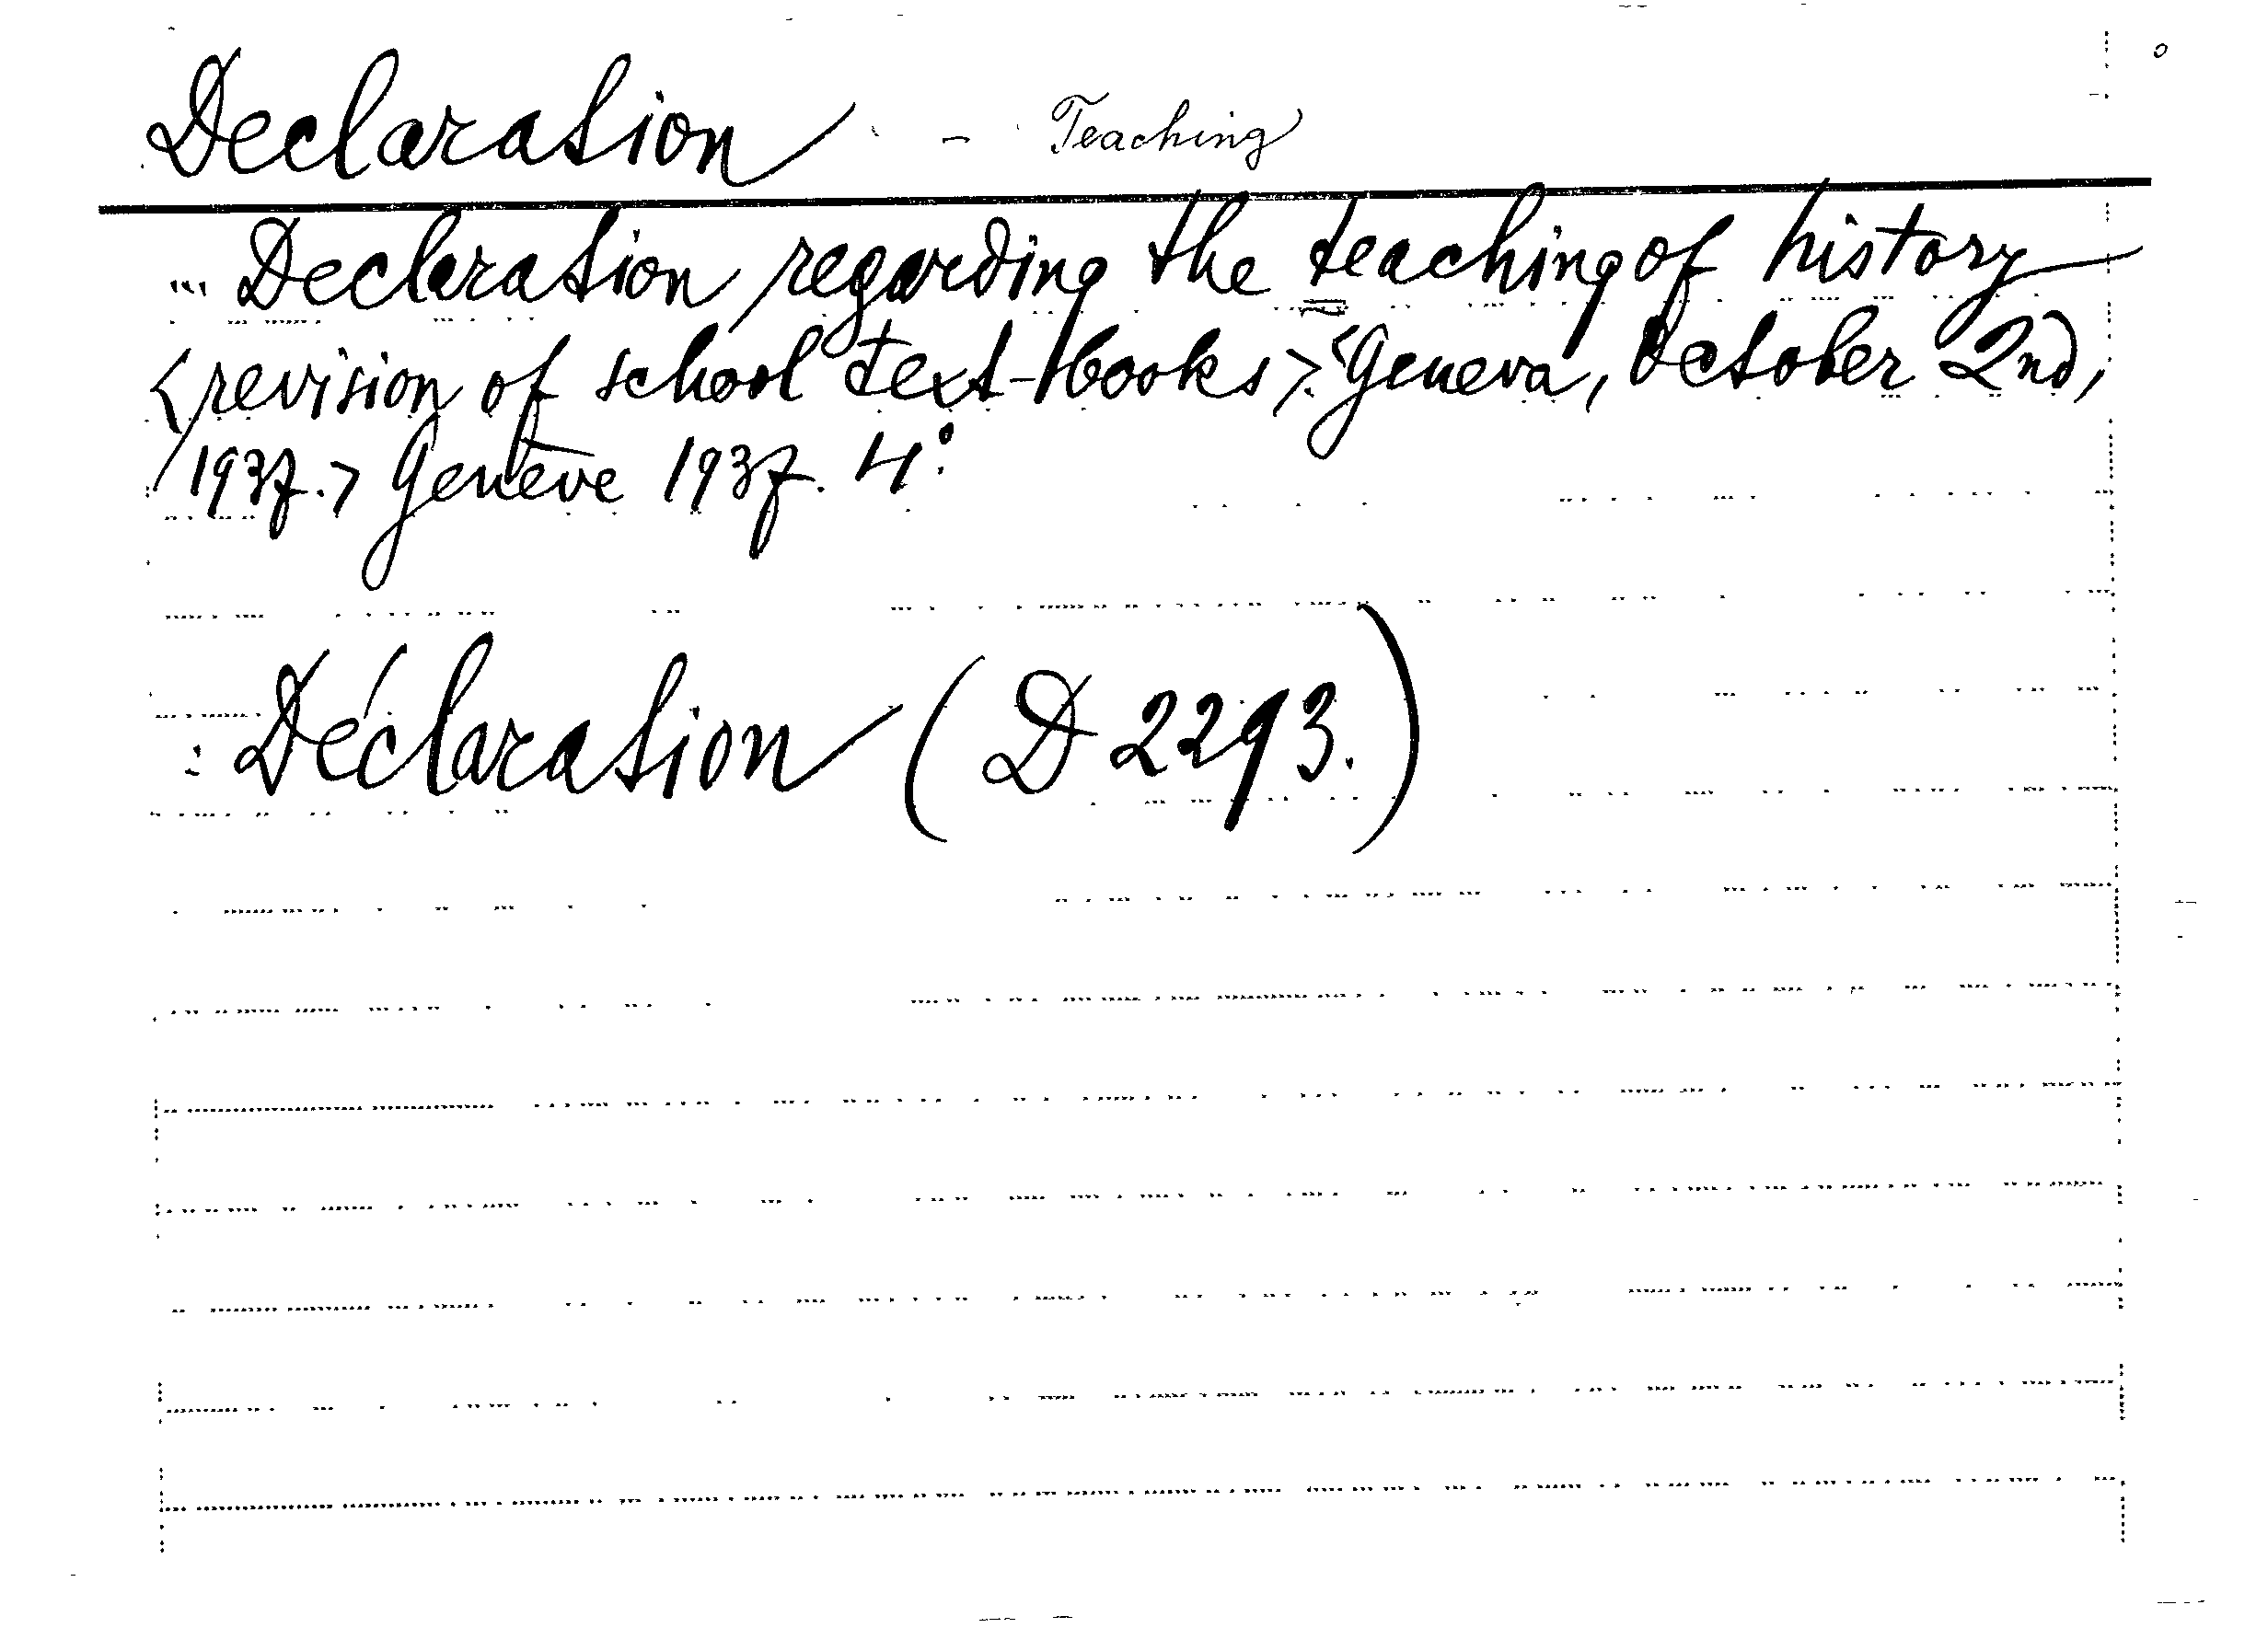 Declaration - Teaching
"' Declaration regarding the teaching of history
<revision of school text-books>. <Geneva, October 2nd,
1937.> Genève 1937. 4°.
: Déclaration (D 2293.)